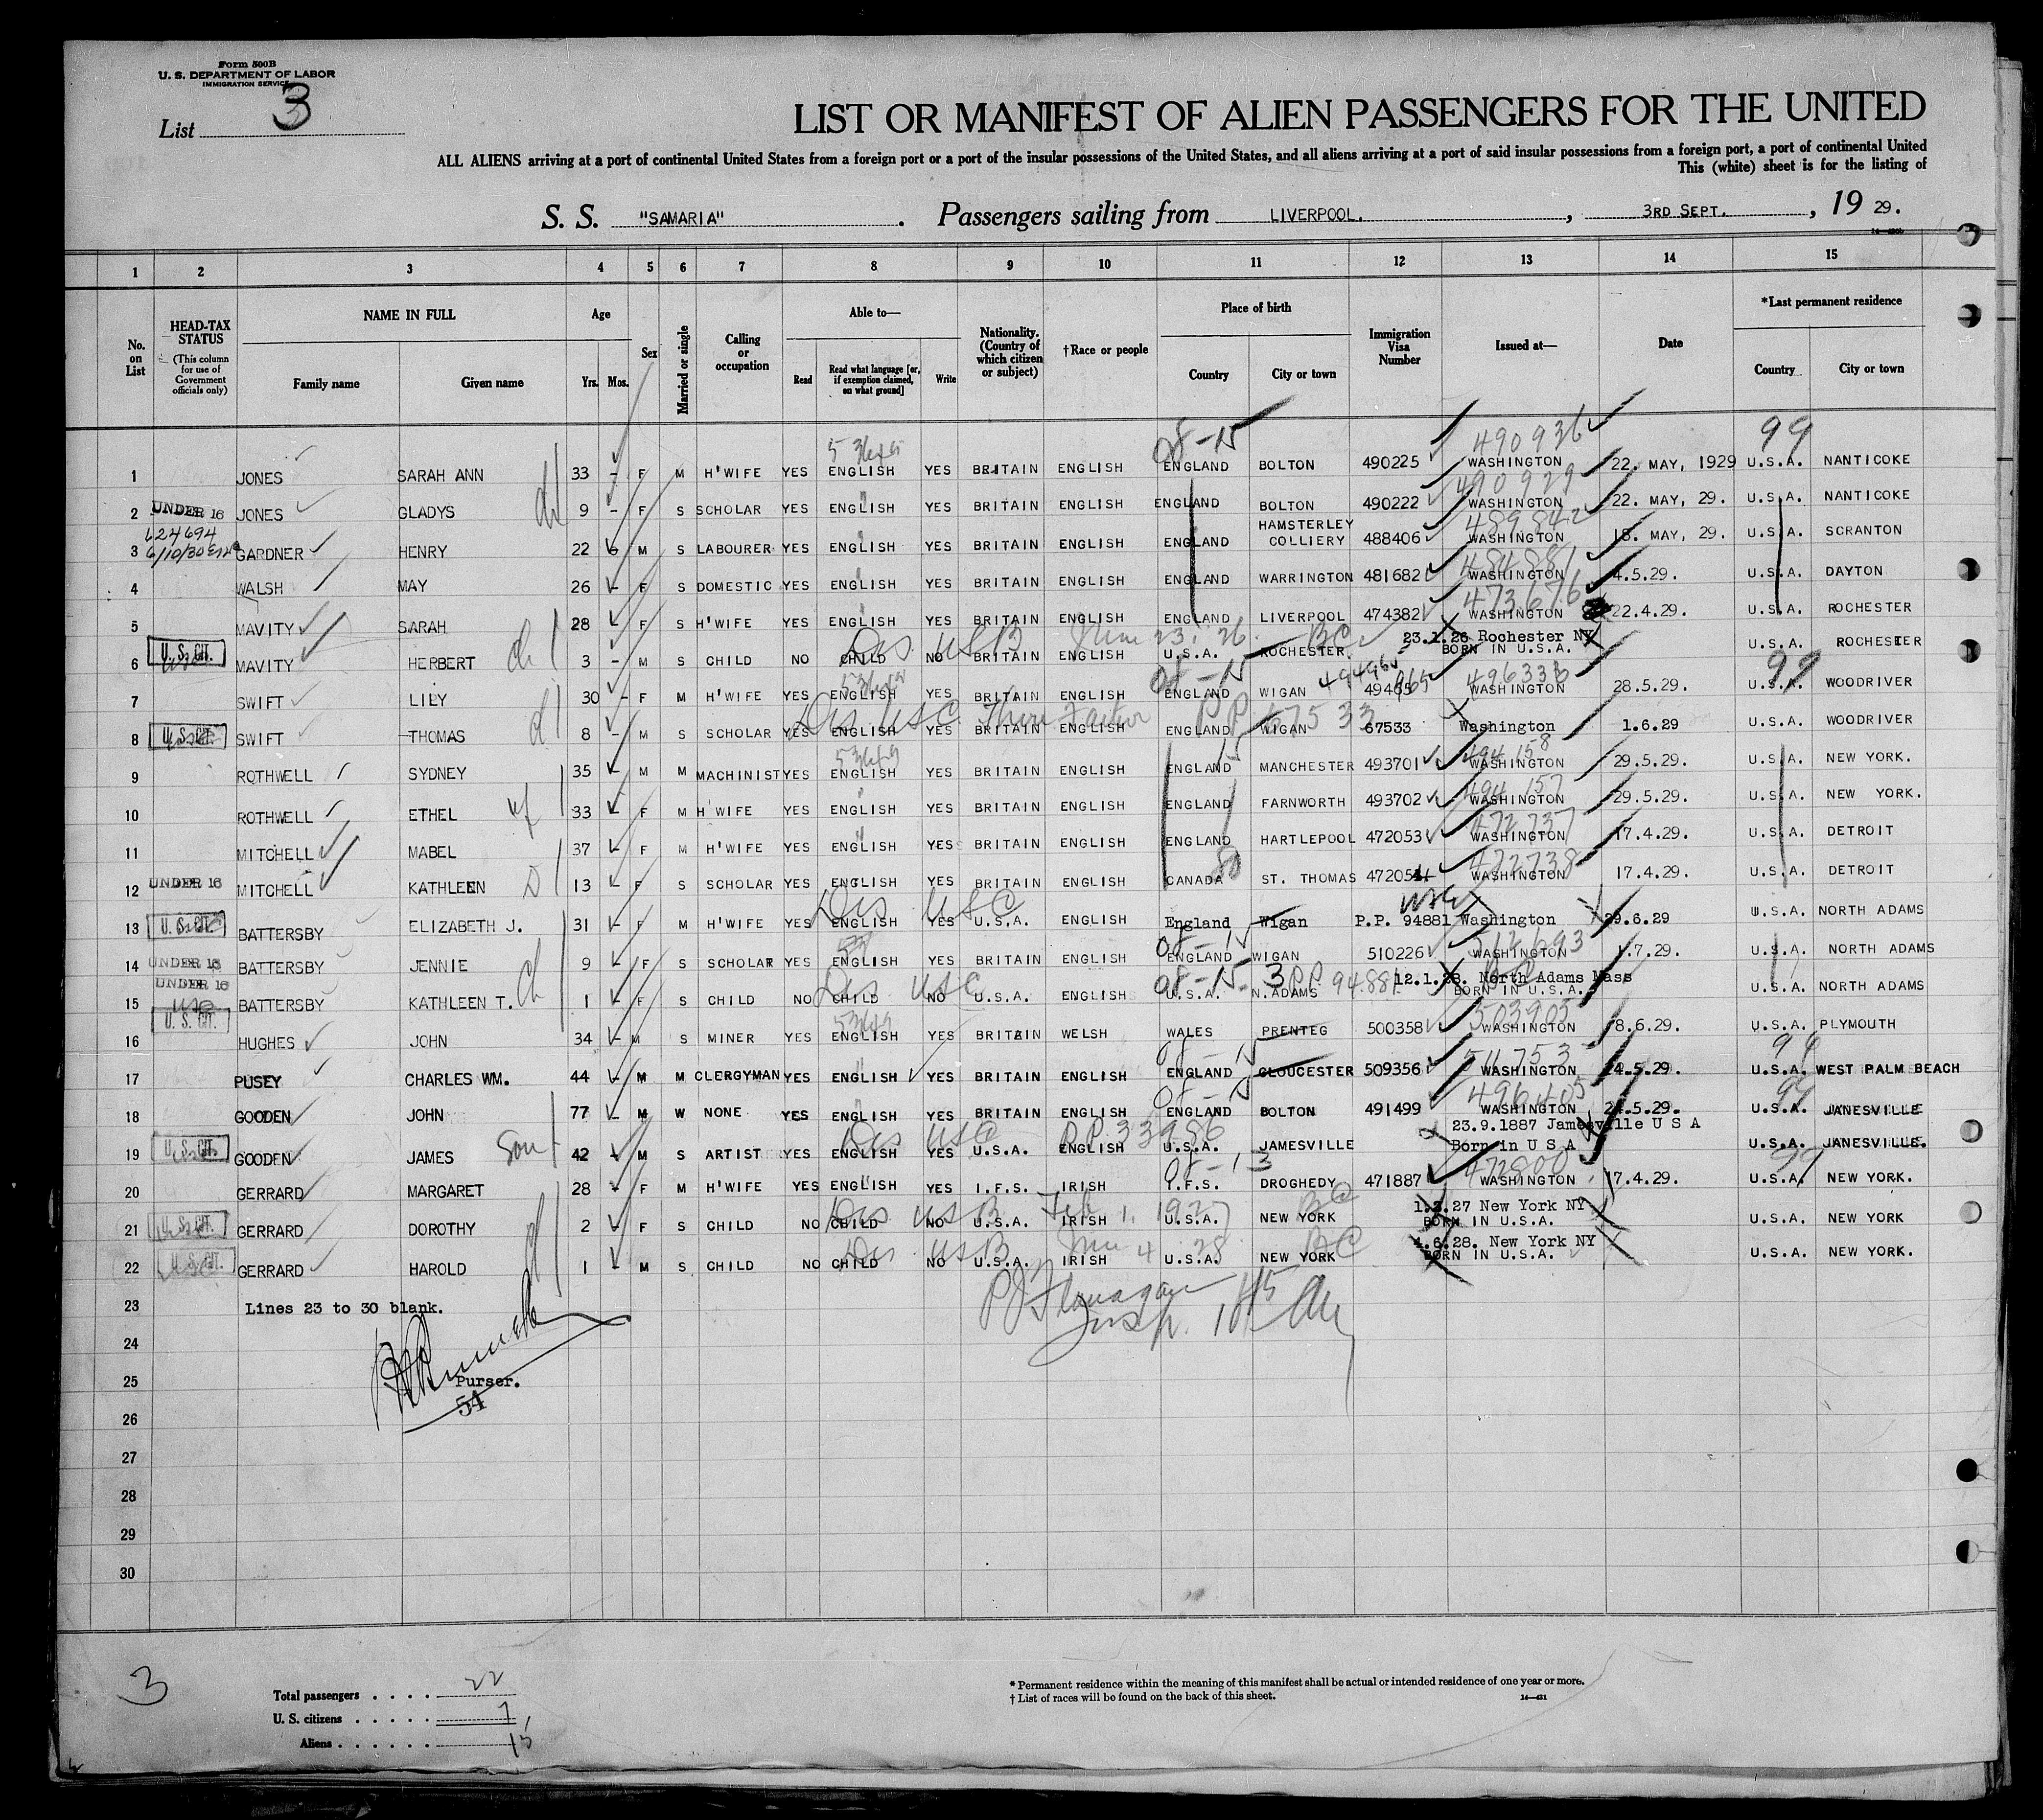 Form 500B
U. S. DEPARTMENT OF LABOR
IMMIGRATION SERVICE
List 3
LIST OR MANIFEST OF ALIEN PASSENGERS FOR THE UNITED
ALL ALIENS arriving at a port of continental United States from a foreign port or a port of the insular possessions of the United States, and all aliens arriving at a port of said insular possessions from a foreign port, a port of continental United
This (white) sheet is for the listing of
S. S. "SAMARIA". Passengers sailing from LIVERPOOL., 3RD SEPT., 19 29.
1 2 3 4 5 6 7 8 9 10 11 12 13 14 15
No. on List
HEAD-TAX STATUS
(This column for use of Government officials only)
NAME IN FULL
Family name Given name
Age
Yrs. Mos.
Sex
Married or single
Calling or occupation
Able to—
Read Read what language [or, if exemption claimed, on what ground] Write
Nationality. (Country of which citizen or subject)
†Race or people
Place of birth
Country City or town
Immigration Visa Number
Issued at—
Date
*Last permanent residence
Country City or town
08-15 490936 99
1 JONES SARAH ANN 33 - F M H'WIFE YES ENGLISH YES BRITAIN ENGLISH ENGLAND BOLTON 490225 WASHINGTON 22. MAY, 1929 U.S.A. NANTICOKE
490929
2 UNDER 16 JONES GLADYS 9 - F S SCHOLAR YES ENGLISH YES BRITAIN ENGLISH ENGLAND BOLTON 490222 WASHINGTON 22. MAY, 29. U.S.A. NANTICOKE
624694 489842
3 6/10/30 GARDNER HENRY 22 M S LABOURER YES ENGLISH YES BRITAIN ENGLISH ENGLAND HAMSTERLEY COLLIERY 488406 WASHINGTON 18. MAY, 29. U.S.A. SCRANTON
484881
4 WALSH MAY 26 - F S DOMESTIC YES ENGLISH YES BRITAIN ENGLISH ENGLAND WARRINGTON 481682 WASHINGTON 4.5.29. U.S.A. DAYTON
473676
5 MAVITY SARAH 28 F S H'WIFE YES ENGLISH YES BRITAIN ENGLISH ENGLAND LIVERPOOL 474382 WASHINGTON 22.4.29. U.S.A. ROCHESTER
Des USB 23, 26 BC 23.1.26 Rochester NY
6 U.S. CIT. MAVITY HERBERT ch 3 - M S CHILD NO CHILD NO BRITAIN ENGLISH U.S.A. ROCHESTER. BORN IN U.S.A. U.S.A. ROCHESTER
08-15 496333 99
7 SWIFT LILY 30 - F M H'WIFE YES ENGLISH YES BRITAIN ENGLISH ENGLAND WIGAN WASHINGTON 28.5.29. U.S.A. WOODRIVER
Des USC Thru Father PP 67533
8 U.S. CIT. SWIFT THOMAS 8 - M S SCHOLAR YES ENGLISH YES BRITAIN ENGLISH ENGLAND WIGAN 67533 Washington 1.6.29 U.S.A. WOODRIVER
494158
9 ROTHWELL SYDNEY 35 - M M MACHINIST YES ENGLISH YES BRITAIN ENGLISH ENGLAND MANCHESTER 493701 WASHINGTON 29.5.29. U.S.A. NEW YORK.
494157
10 ROTHWELL ETHEL wf 33 - F M H'WIFE YES ENGLISH YES BRITAIN ENGLISH ENGLAND FARNWORTH 493702 WASHINGTON 29.5.29. U.S.A. NEW YORK.
472737
11 MITCHELL MABEL 37 - F M H'WIFE YES ENGLISH YES BRITAIN ENGLISH ENGLAND HARTLEPOOL 472053 WASHINGTON 17.4.29. U.S.A. DETROIT
472738
12 UNDER 16 MITCHELL KATHLEEN D 13 - F S SCHOLAR YES ENGLISH YES BRITAIN ENGLISH CANADA ST. THOMAS 472054 WASHINGTON 17.4.29. U.S.A. DETROIT
Des USC USC
13 U.S. CIT. BATTERSBY ELIZABETH J. 31 - F M H'WIFE YES ENGLISH YES U.S.A. ENGLISH England Wigan P.P. 94881 Washington 29.6.29 U.S.A. NORTH ADAMS
08-15 512693
14 UNDER 16 BATTERSBY JENNIE 9 - F S SCHOLAR YES ENGLISH YES BRITAIN ENGLISH ENGLAND WIGAN 510226 WASHINGTON 1.7.29. U.S.A. NORTH ADAMS
UNDER 16 Des USC 08-15 PP 94881 12.1.28. North Adams Mass
15 USC BATTERSBY KATHLEEN T. ch 1 - F S CHILD NO CHILD NO U.S.A. ENGLISH U.S.A. N.ADAMS BORN IN U.S.A. U.S.A. NORTH ADAMS
U.S. CIT. 503905
16 HUGHES JOHN 34 - M S MINER YES ENGLISH YES BRITAIN WELSH WALES PRENTEG 500358 WASHINGTON 8.6.29. U.S.A. PLYMOUTH
08-15 99
17 PUSEY CHARLES WM. 44 - M M CLERGYMAN YES ENGLISH YES BRITAIN ENGLISH ENGLAND GLOUCESTER 509356 WASHINGTON 24.5.29. U.S.A. WEST PALM BEACH
08-15 496405 99
18 GOODEN JOHN 77 - M W NONE YES ENGLISH YES BRITAIN ENGLISH ENGLAND BOLTON 491499 WASHINGTON 24.5.29. U.S.A. JANESVILLE
Des USC P.P. 33986 23.9.1887 Jamesville U S A
19 U.S. CIT. GOODEN JAMES Son 42 - M S ARTIST YES ENGLISH YES U.S.A. ENGLISH U.S.A. JAMESVILLE Born in U S A U.S.A. JANESVILLE.
08-13 472800 99
20 GERRARD MARGARET 28 - F M H'WIFE YES ENGLISH YES I.F.S. IRISH I.F.S. DROGHEDY 471887 WASHINGTON 17.4.29. U.S.A. NEW YORK.
Des USB Feb 1, 1927 BC 1.2.27 New York NY
21 U.S. CIT. GERRARD DOROTHY 2 F S CHILD NO CHILD NO U.S.A. IRISH U.S.A. NEW YORK BORN IN U.S.A. U.S.A. NEW YORK
Des USB 4 28 BC 4.6.28. New York NY
22 U.S. CIT. GERRARD HAROLD 1 - M S CHILD NO CHILD NO U.S.A. IRISH U.S.A. NEW YORK BORN IN U.S.A. U.S.A. NEW YORK.
23 Lines 23 to 30 blank. P J Flanagan
24 Insp.
25 Purser.
54
26
27
28
29
30
3
Total passengers . . . . 22
U. S. citizens . . . . . 7
Aliens . . . . . . 15
* Permanent residence within the meaning of this manifest shall be actual or intended residence of one year or more.
† List of races will be found on the back of this sheet. 14—431